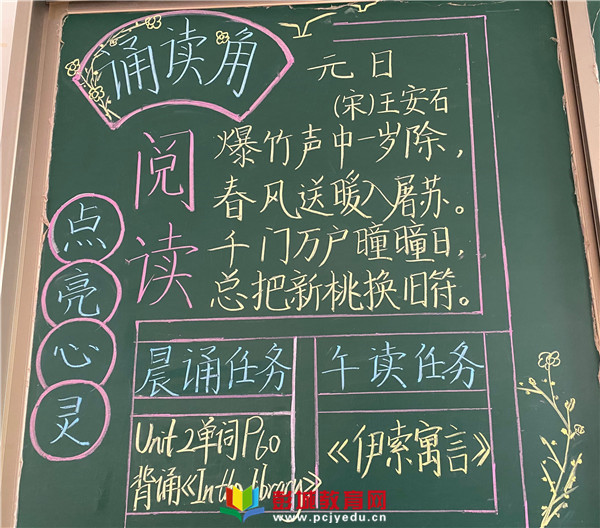 诵读角
阅读
点亮心灵
元日
(宋)王安石
爆竹声中一岁除，
春风送暖入屠苏。
千门万户曈曈日，
总把新桃换旧符。
晨诵任务
Unit 2单词P60
背诵《In the library》
午读任务
《伊索寓言》
彭城教育网
www.pcjyedu.cn